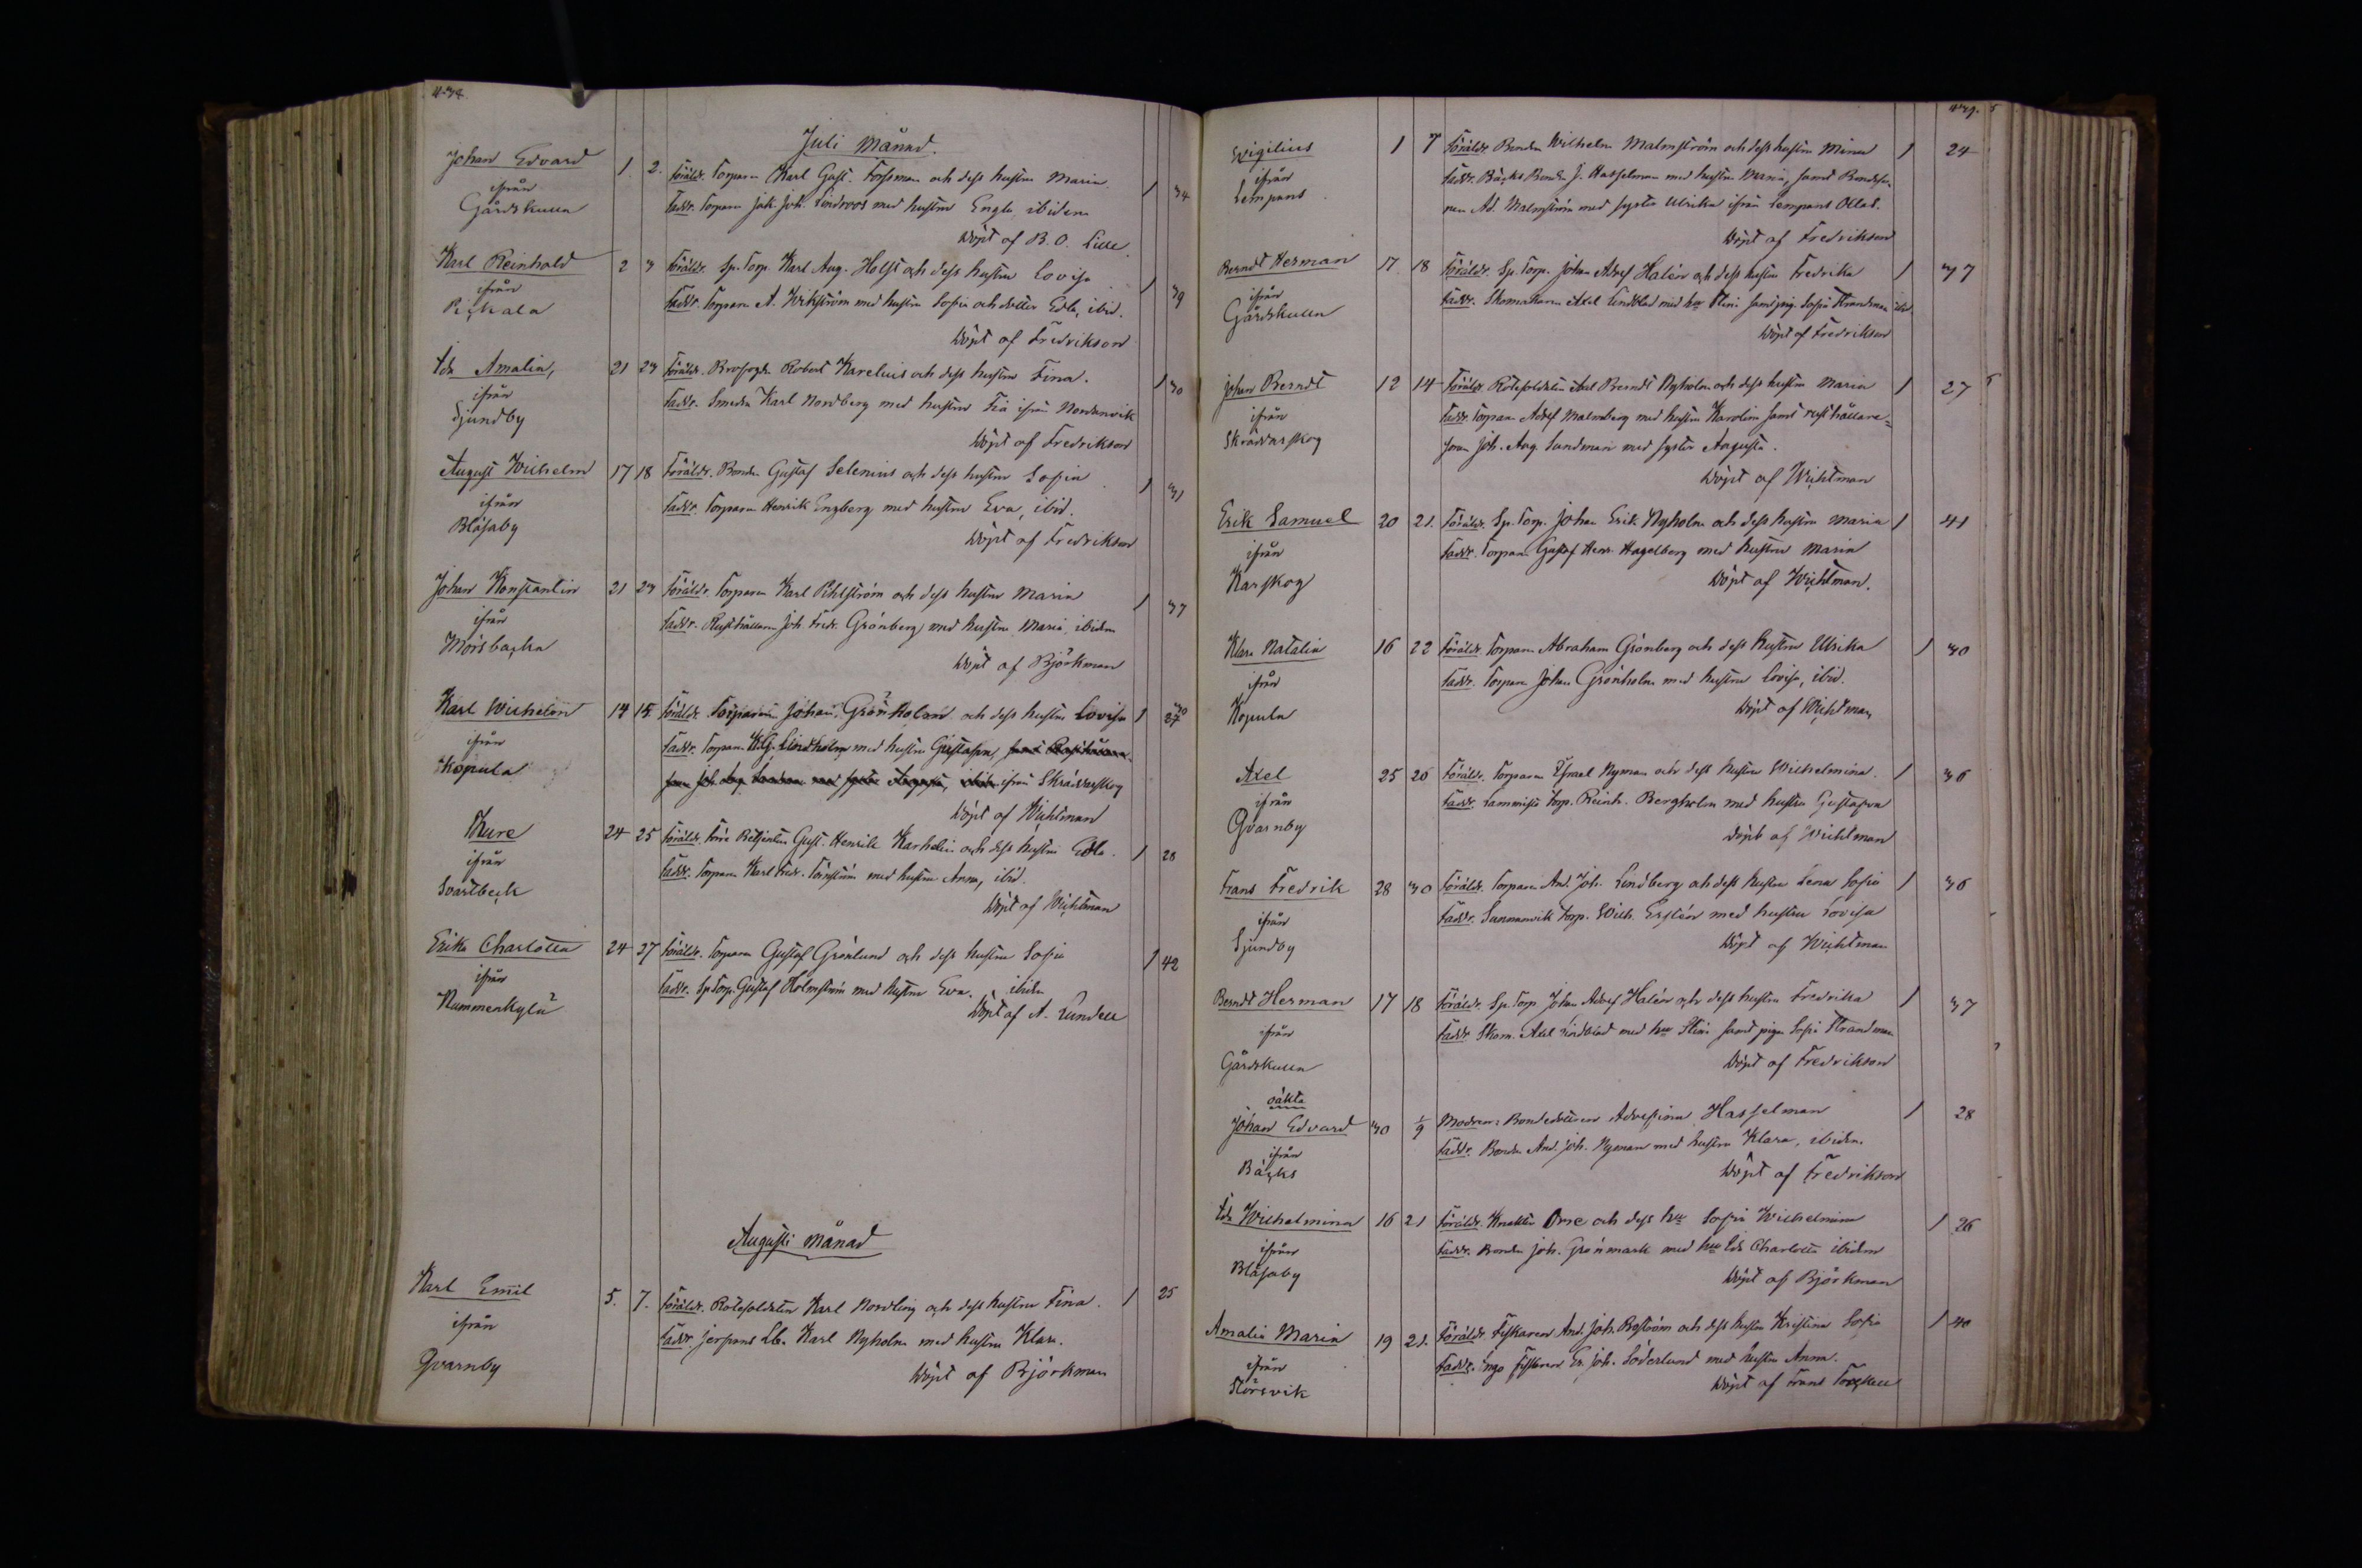 Juli Månad.
Johan Edvard 1. 2. Föräldr. Torparen Karl Gust. Forssman och dess hustru Maria 1 34
ifrån Faddr. Torparen Jak. Joh. Lindroos med hustru Engla, ibidem
Gårdskulla
Döpt af B. O. Lille
Karl Reinhold 2 3 Föräldr. Sp. Torp. Karl Aug. Holst och dess hustru Lovisa 1 39
ifrån Faddr. Torparen A. Wikström med hustru Sofia och dotter Edla, ibid.
Pickala
Döpt af Fredrikson
Ida Amalia, 21 23 Föräldr. Robert Karelius och dess hustru Fina. 1 30
ifrån Faddr. Smeden Karl Nordberg med hustru Fia ifrån Nordanvik
Sjundby
Döpt af Fredrikson
August Wilhelm 17 18 Föräldr. Bonden Gustaf Selenius och dess hustru Sofia 1 31
ifrån Faddr. Torparen Henrik Engberg med hustru Eva, ibid.
Blåsaby
Döpt af Fredrikson
Johan Konstantin 21 23 Föräldr. Torparen Karl Öhlström och dess hustru Maria 1 37
ifrån Faddr. Rusthållaren Joh. Fredr. Grönberg med hustru Maria, ibidem
Mörsbacka
Döpt af Björkman
Karl Wilhelm 14 15 Föräldr. Torparen Johan Grönholm och dess hustru Lovisa 1 30 27
ifrån Faddr. Torparen K.G. Lindholm med hustru Gustafva, samt Rusthållare-
Kopula son Joh. Aug. Sundman med syster Augusta, ibidem ifrån Skräddarskog
Döpt af Wichtman
Thure 24 25 Föräldr. Förre Betjenten Gust. Henrik Karhelin och dess hustru Edla. 1 28
ifrån Faddr. Torparen Karl Fredr. Törnström med hustru Anna, ibid.
Svartbeck
Döpt af Wichtman
Erika Charlotta 24 27 Föräldr. Torparen Gustaf Grönlund och dess hustru Sofia 1 42
ifrån Faddr. Sp Torp. Gustaf Holmström med hustru Eva. ibidem
Nummenkylä
Döpt af A. Lundell
Augusti månad
Karl Emil 5. 7. Föräldr. Rotesoldaten Karl Nordling och dess hustru Fina. 1 25
ifrån Faddr. Karl Nyholm med hustru Klara.
Qvarnby
Döpt af Björkman
Wigilius 1 7 Föräldr. Bonden Wilhelm Malmström och dess hustru Mina 1 24
ifrån Faddr. Bäcks Bonden J. Hasselman med hustru Maria, samt Bondeso-
Sempans nen Ad. Malmström med syster Ulrika ifrån Sempans Ollas.
Döpt af Fredrikson
Berndt Herman 17 18 Föräldr. Sp. Torp. Johan Adolf Halén och dess hustru Fredrika 1 37
ifrån Faddr. Skomakaren Axel Lindblad med hu Stina samt pig. Sofia Strandman ibid.
Gårdskulla
Döpt af Fredrikson
Johan Berndt 12 14 Föräldr. Rotesoldaten Axel Berndt Nyholm och dess hustru Maria 1 27
ifrån Faddr. Torparen Adolf Malmberg med hustru Karolina samt rusthållare-
Skräddarskog sonen Joh. Aug. Sundman med syster Augusta.
Döpt af Wichtman
Erik Samuel 20 21. Föräldr. Sp. Torp. Johan Erik Nyholm och dess hustru Maria 1 41
ifrån Faddr. Torparen Gustaf Henr. Hagelberg med hustru Maria
Karskog
Döpt af Wichtman.
Klara Natalia 16 22 Föräldr. Torparen Abraham Grönberg och dess hustru Ulrika 1 30
ifrån Faddr. Torparen Johan Grönholm med hustru Lovisa, ibid.
Kopula
Döpt af Wichtman
Axel 25 26 Föräldr. Torparen Israel Nyman och dess hustru Wilhelmina. 1 36
ifrån Faddr. Torp. Reinh. Bergholm med hustru Gustafva
Qvarnby
Döpt af Wichtman
Frans Fredrik 28 30 Föräldr. Torparen And. Joh. Lindberg och dess hustru Lena Sofia 1 36
ifrån Faddr. Sunnanvik Torp. Wilh. Erstén med hustru Lovisa
Sjundby
Döpt af Wichtman
Berndt Herman 17 18 Föräldr. Sp. Torp. Johan Adolf Halén och dess hustru Fredrika 1 37
ifrån Faddr. Skom. Axel Lindblad med hu Stina samt pigan Sofia Strandman
Gårdskulla
Döpt af Fredrikson
oäkta
Johan Edvard 30 1/9 Modren: Bondedottren Adolfina Hasselman 1 28
ifrån Faddr. Bonden And. Joh. Nyman med hustru Klara, ibidem.
Bäcks
Döpt af Fredrikson
Ida Wilhelmina 16 21 Föräldr. Knekten Orre och dess hu Sofia Wilhelmina 1 26
ifrån Faddr. Bonden Joh. Grönmark med hu Ida Charlotta ibidem
Blåsaby
Döpt af Björkman
Amalia Maria 19 21. Föräldr. Fiskaren And. Joh. Boström och dess hustru Kristina Sofia 1 40
ifrån Faddr. Ingo Fiskaren Er. Joh. Söderlund med hustru Anna.
Störsvik
Döpt af Frans Tocklin